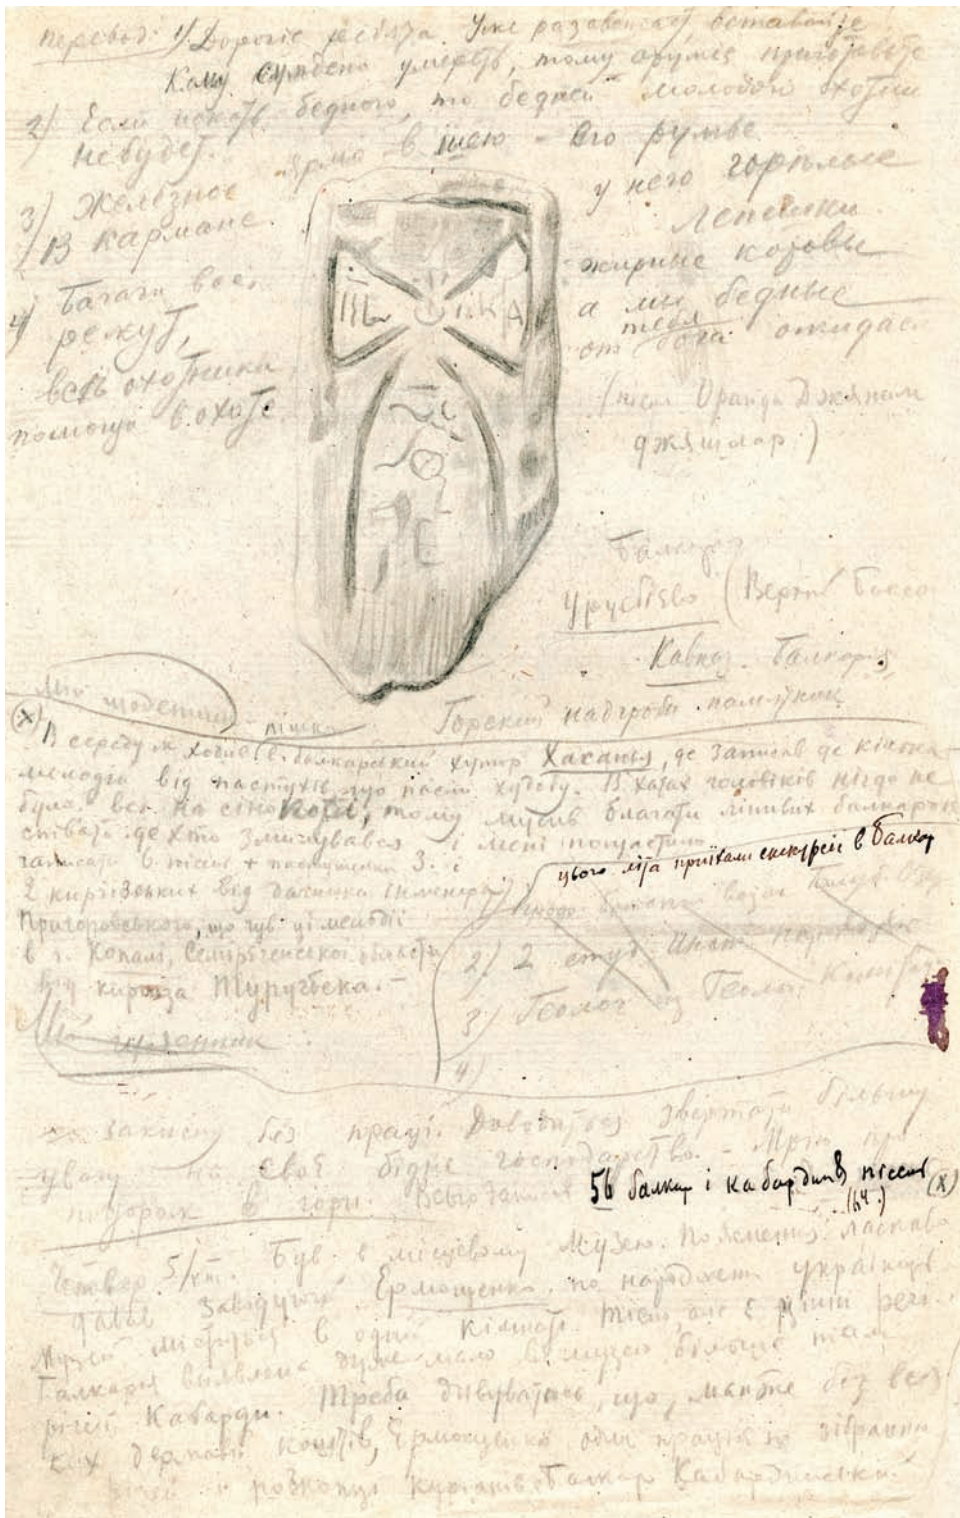 перевод: 1) Дорогіе ребята. Уже разсветает, вставайте
Кому суждено умереть, тому оружіе приготовьте
2) Если искать бедного, то бедней молодого охотни
не будет.
3) Железное ярмо в шею – его ружье
В кармане у него горелые
лепешки.
4) Багачи все жирные коровы
режут, а мы бедные
тебя
весь охотники от бога ожидаем
помощи в охоте.
(пісня Орайда Джяным
джяшлар.)
Балкар
Урусбієво (Верхній Баксан
Кавказ. Балкарія
Горский надгробн. памятник
Мій щоденник
(х)
пішки
В середу я ходив в балкарський хутор Хасанья, де записав де кілька
мелодій від пастухів що пасли худобу. В хатах чоловіків нігде не
було. Всі на сінокосі, тому мусив благати лінивих балкарок
співати. де хто змилувався і мені пощастило
записати 6 пісень + 3. і
2 киргізських від
Пригоровського, що чув ці мелодії
в г. Копалі, Семиріченської области
від киргіза Туругбека. –
цього літа приїхали екскурсії в Балкар
2) 2 студ.
3) Геолог из Геолог. Комитета
4)
Мій щоденник
закисну без праці. Доводиться звертати більшу
увагу на своє бідне господарство. – Мрію про
подорож в гори. Всього записав 56 балкар і кабардинів пісень (х)
Четвер 5/VIII. Був в місцевому Музею. Пояснення ласкаво
давав завідуючий Ермощенко по народженню українець.
Музей міститься в одній кімнаті. Тісно, але є цінні речі.
Балкарія виявлена дуже мало в музею більше
річей Кабарди. Треба дивуватись, що, майже без вся
ких державн. коштів, Ермощенко один працює по збіранню
річей і розкопці курганів Балкар Кабардинських.